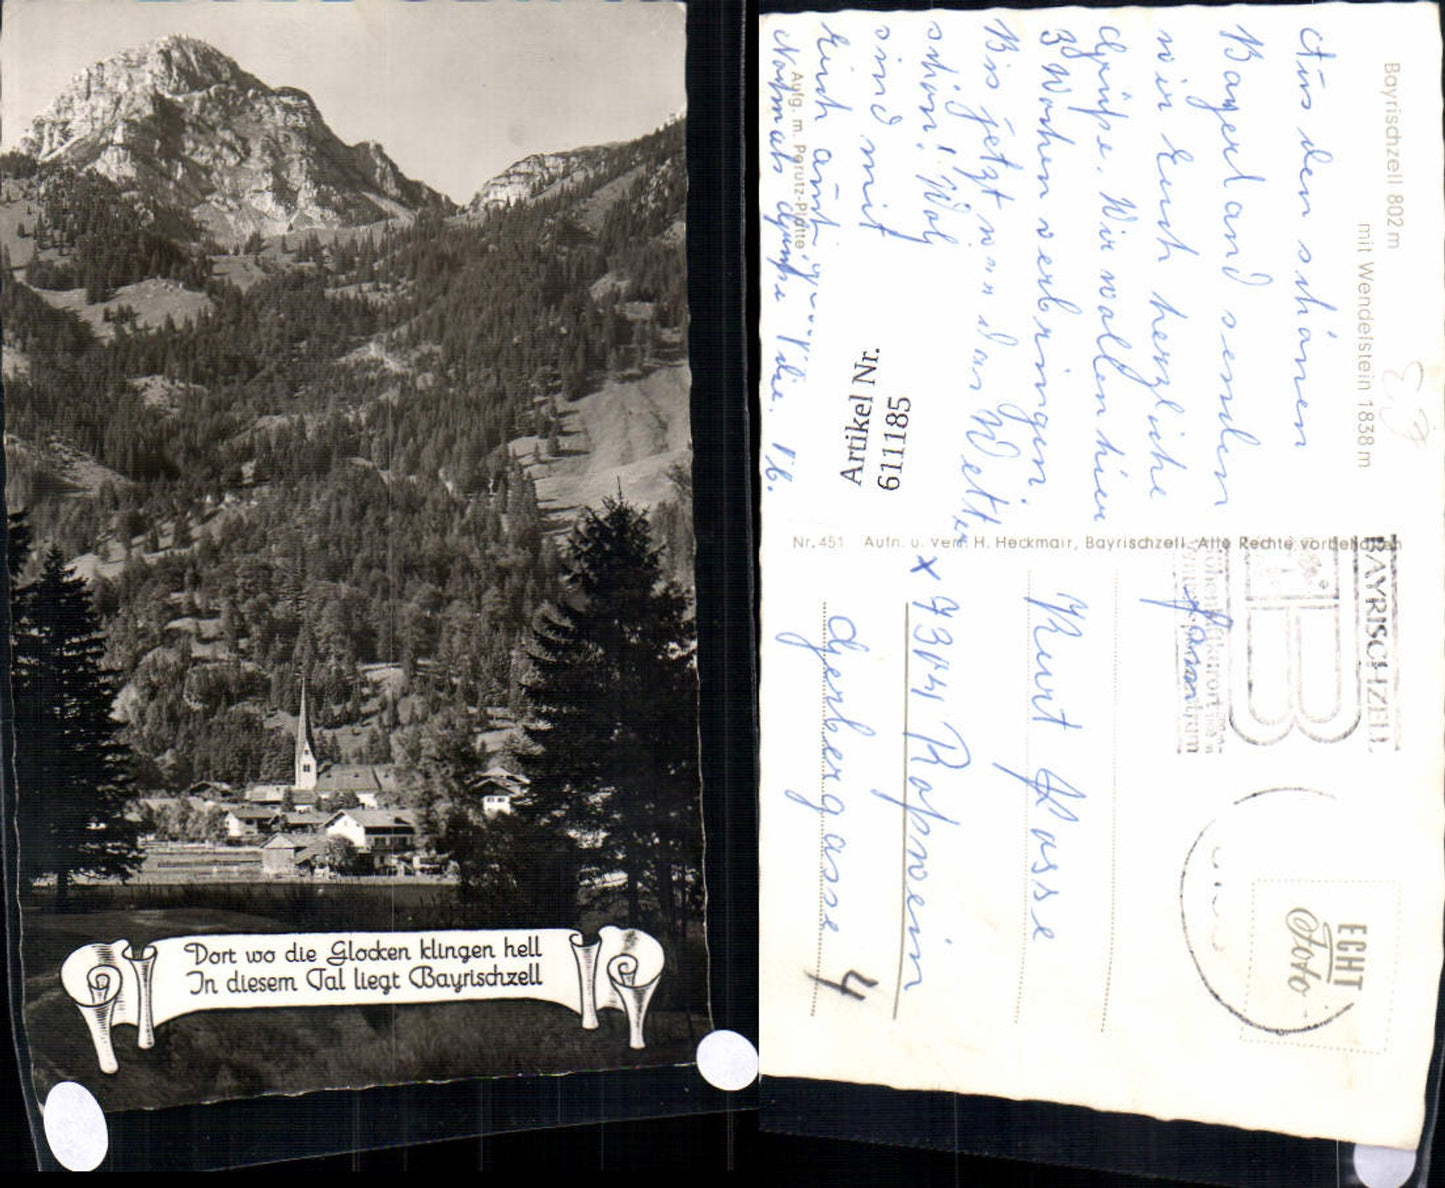 Dort wo die Glocken klingen hell
In diesem Tal liegt Bayrischzell
Bayrischzell 802 m
mit Wendelstein 1838 m
Aus den schönen
Bayerland senden
wir Euch herzliche
Grüße. Wir wollen hier
3 Wochen verbringen.
Bis jetzt war das Wetter
schön!
sind mit
Euch
Nochmals Grüße
Aufg. m. Perutz-Platte
Artikel Nr.
611185
Nr. 451 Aufn. u. Verl. H. Heckmair, Bayrischzell. Alle Rechte vorbehalten
BAYRISCHZELL
Höhenluftkurort
ECHT
Foto
Kurt Hosse
x 7304 Roßwein
Gerbergasse 4